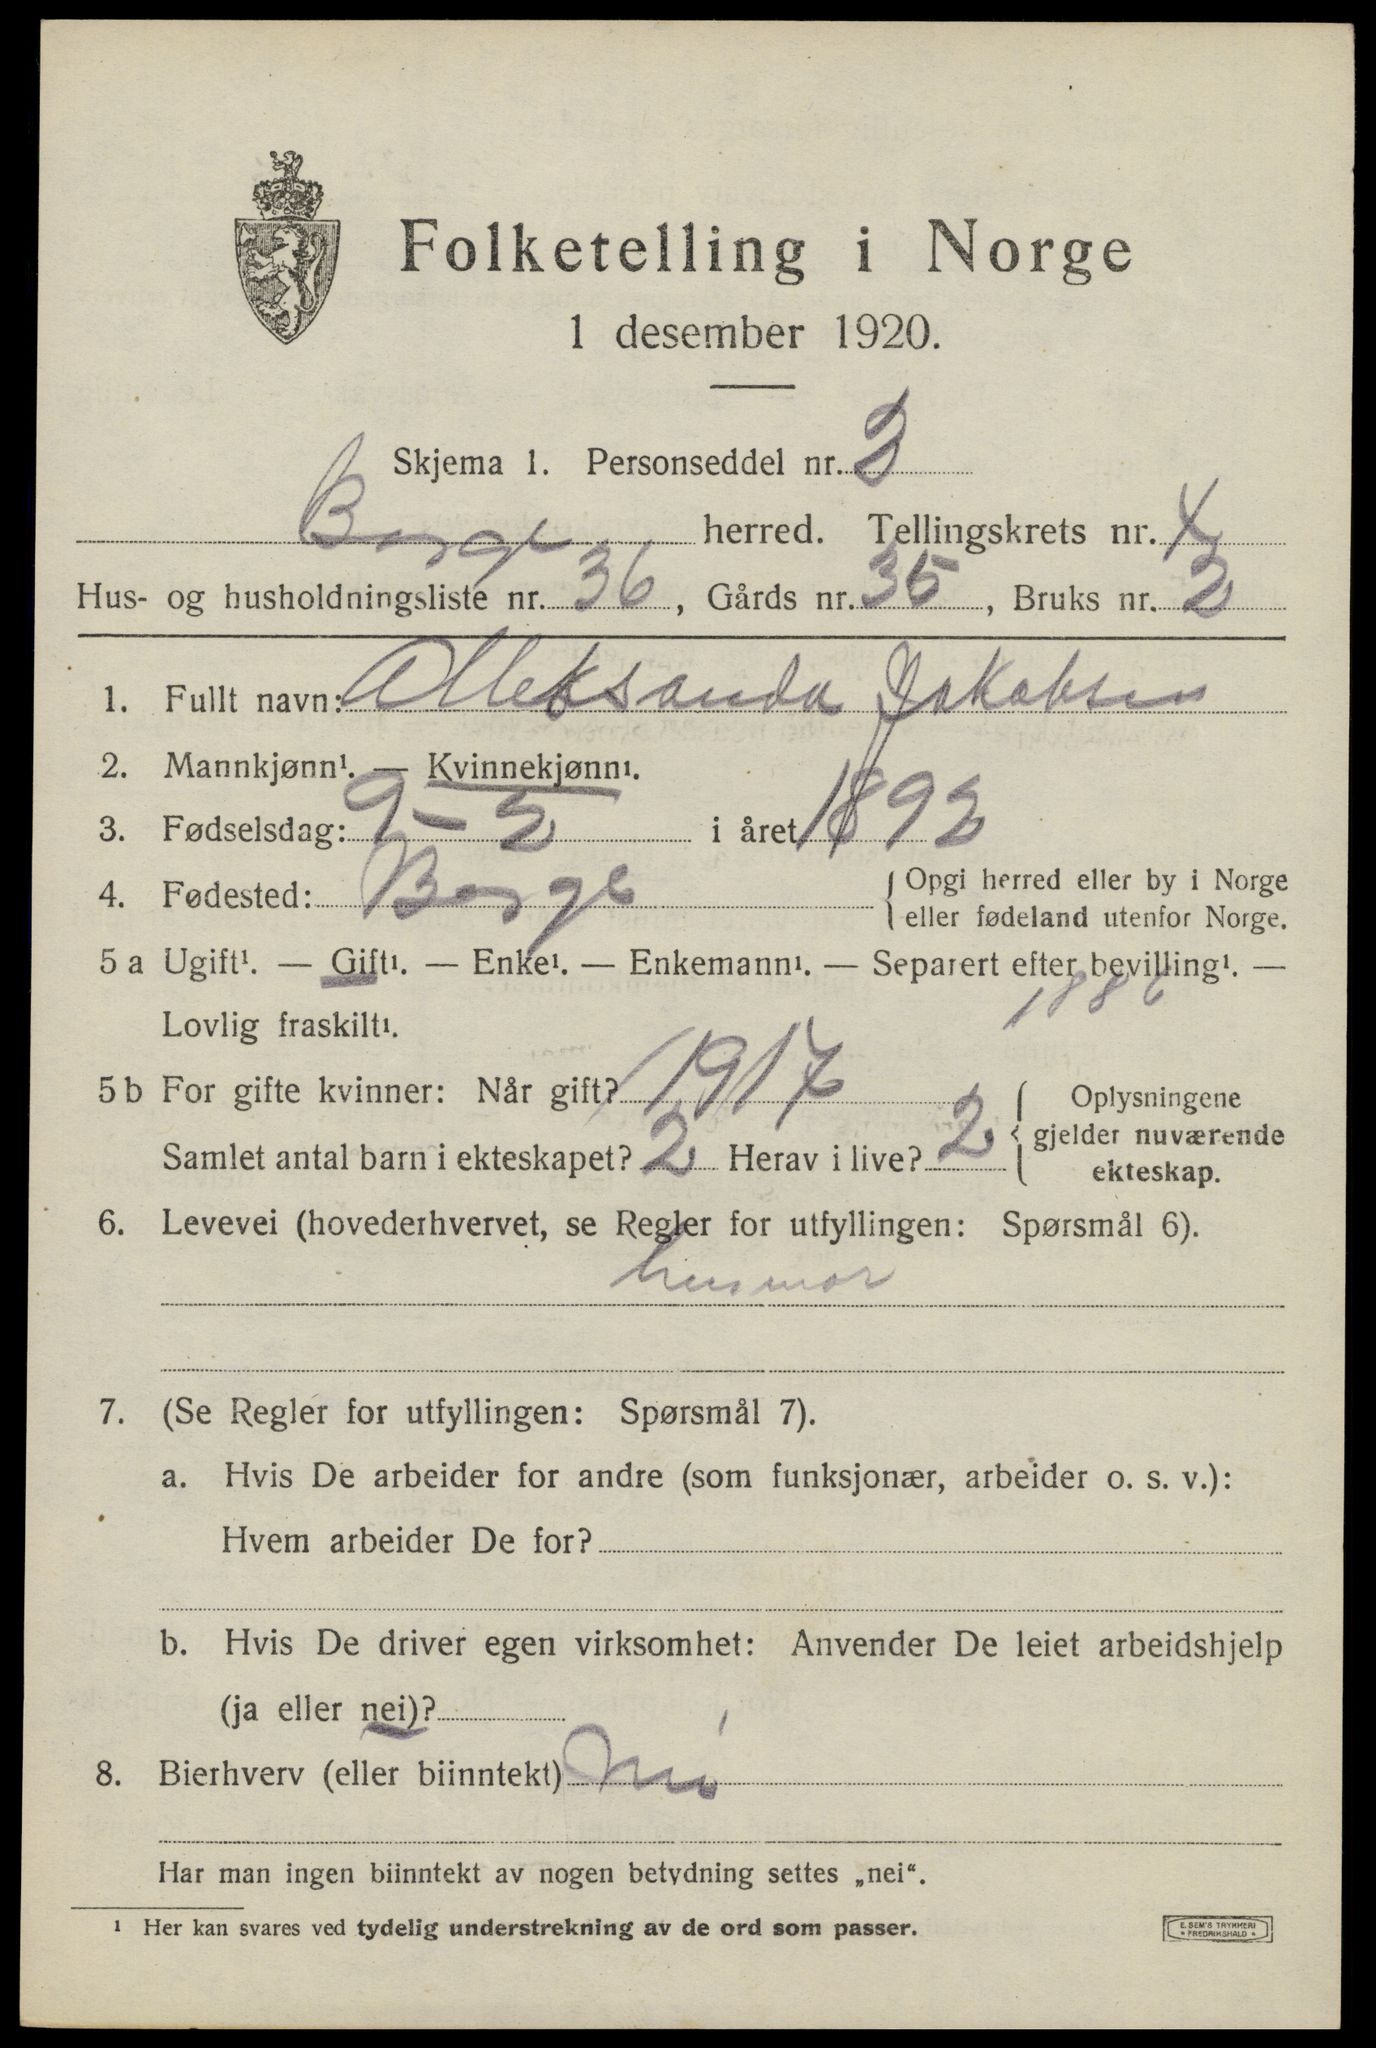 Folketelling i Norge
1 desember 1920.
Skjema 1. Personseddel nr. 2
Borge herred. Tellingskrets nr. 4
Hus- og husholdningsliste nr. 36, Gårds nr. 35, Bruks nr. 2
1. Fullt navn: Alleksanda Jakobsen
2. Mannkjønn¹. — Kvinnekjønn¹.
3. Fødselsdag: 9-2 i året 1892
4. Fødested: Borge { Opgi herred eller by i Norge
eller fødeland utenfor Norge.
5 a Ugift¹. — Gift¹. — Enke¹. — Enkemann¹. — Separert efter bevilling¹. —
Lovlig fraskilt¹. 1886
5 b For gifte kvinner: Når gift? 1917
Samlet antal barn i ekteskapet? 2 Herav i live? 2 { Oplysningene
gjelder nuværende
ekteskap.
6. Levevei (hovederhvervet, se Regler for utfyllingen: Spørsmål 6).
husmor
7. (Se Regler for utfyllingen: Spørsmål 7).
a. Hvis De arbeider for andre (som funksjonær, arbeider o. s. v.):
Hvem arbeider De for?
b. Hvis De driver egen virksomhet: Anvender De leiet arbeidshjelp
(ja eller nei)?
8. Bierhverv (eller biinntekt) Nei
Har man ingen biinntekt av nogen betydning settes „nei“.
¹ Her kan svares ved tydelig understrekning av de ord som passer.
E. SEM'S TRYKKERI
* FREDRIKSHALD *